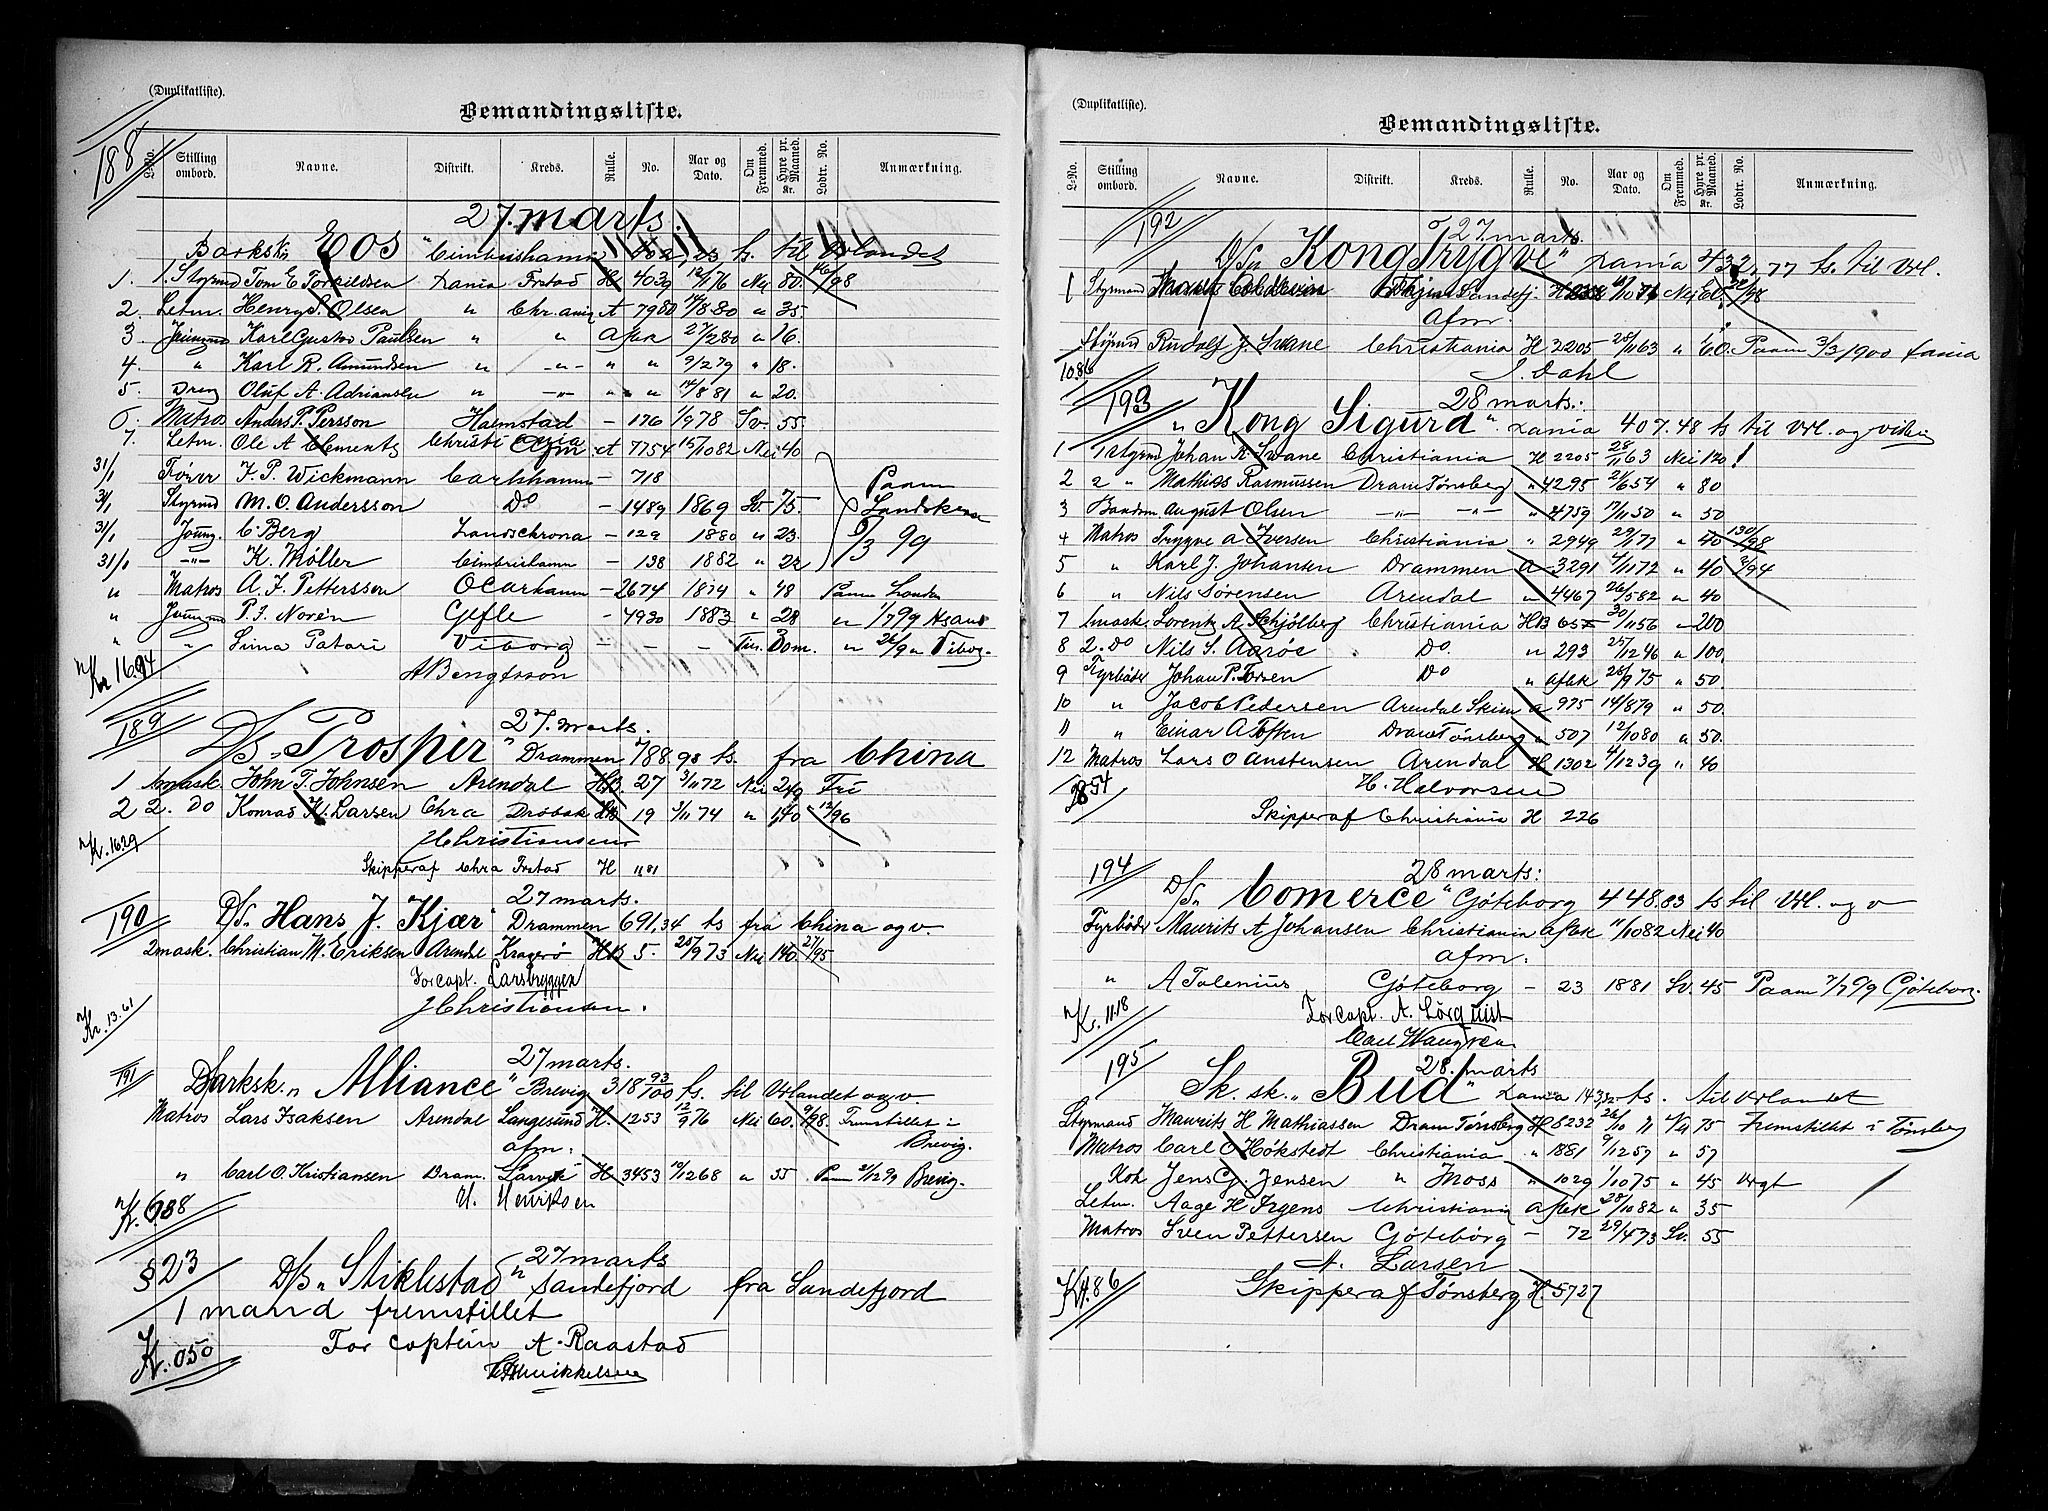 (Duplikatliste).
Bemandingsliste.
188
L-No. Stilling ombord. Navne. Distrikt. Kreds. Rulle. No. Aar og Dato. Om Fremmed. Hyre pr. Maaned. Kr. Lodtr. No. Anmærkning.
27. marts.
Barksk. "Eos" Cimbrishamn ts. til Udlandet
1. 1. Styrmd Tom E Torkildsen Xania Frstad H 4039 12/1 76 Nei 80. 98
2. Letm. Henry S. Olsen " Chr.ania A 7980 80 " 35.
3 Jungmd Karl Gustav Paulsen " " Afsk 27/2 80 " 16.
4. " Karl R. Amundsen " -"- " " 9/2 79 " 18.
5. Dreng Oluf A. Adriansen " -"- " " 14/8 81 " 20.
6. Matros Anders P. Persson Halmstad - 176 1/9 78 Sv. 55.
7. Letm. Ole A Clements Christiania A 7754 15/10 82 Nei 40
Afm
31/1 Fører F. P. Wickmann Carlshamn - 718
31/1 Styrmd M. O. Andersson Do - 1489 1869 Sv. 75. Paam
31/1 Joung. C. Berg Landschrona - 129 1880 " 23. Landskrona
31/1 -"- K. Møller Cimbrishamn - 138 1882 " 22 9/3 99
" Matros A. F. Pettersson Ocarhamn - 2674 1874 " 48 Paam London
" Jungmd P. J. Norén Gefle - 4930 1883 " 28 " 1/7 99
" " Sima Patari Viborg - - - Fin. 30m. "
Kr 16.94 A Bengtsson
189 27. marts.
D/S "Prosper" Drammen 788,98 ts. fra China
1 1 mask. John T. Johnsen Arendal HB. 27 3/11 72 Nei 249 Fri
2 2. Do Konrad H. Larsen Chra Drøbak HB 19 3/11 74 " 140 12/96
Kr. 16.29 J Christiansen
Skipper af Chra Frstad H 1181
190 27 marts.
D/S. "Hans J. Kjær" Drammen 691,34 ts fra China og v.
2 mask. Christian M. Eriksen Arendal Kragerø HB 5. 25/9 73 Nei 140 27/95
For capt. Larsbryggen
Kr. 13.61 J Christiansen.
191 27 marts.
Barksk. "Alliance" Brevig 318 93/100 ts. til Udlandet og v.
Matros Lars Isaksen Arendal Langesund H. 1253 12/9 76 Nei 60. 9/98. Fremstillet i
afm: Brevig.
" Carl O. Kristiansen Dram. Larvik H 3453 19/12 68 " 55. Paam 2/12 99 Brevig.
Kr. 6.88 U. Henriksen
§ 23 27 marts
D/S "Stiklestad" Sandefjord fra Sandefjord
1 mand fremstillet
For captein A. Raastad
Kr. 050 Mikkelsen
(Duplikatliste).
Bemandingsliste.
L-No. Stilling ombord. Navne. Distrikt. Kreds. Rulle. No. Aar og Dato. Om Fremmed. Hyre pr. Maaned. Kr. Lodtr. No. Anmærkning.
192 27 marts.
D/S "Kong Trygve" Xania 432,77 ts. til Udl.
1 Styrmand Sandefj. Nei 60. 98
Afm.
Styrmd Rudolf J. Svane Christiania H 2205 28/11 63 " 60. Paam 3/3 1900 Xania
10.86 S. Dahl
193 28 marts.
" Kong Sigurd". Xania 407.48 ts til Udl. og videre
1 1 styrmd Johan K. Svane Christiania H 2205 28/11 63 Nei 120 !
2 2 " Mathias Rasmussen Dram Tønsberg " 4295 2/6 54 " 80
3 Baadsm. August Olsen -"- -"- " 4759 17/11 50 " 50
4 Matros Trygve A Iversen Christiania " 2949 29/1 77 " 40 130/98
5 " Karl J. Johansen Drammen A 3291 4/11 72 " 40 94
6 " Nils Sørensen Arendal " 4467 26/5 82 " 40
7 1 mask. Lorentz A Schjølberg Christiania HB 65 30/11 56 " 200
8 2. Do Nils S. Agrøe Do. " 293 25/12 46 " 100.
9 Fyrbøder Johan P. Torsen Do " Afsk 28/9 75 " 50.
10 " Jacob Pedersen Arendal Skien A 975 14/8 79 " 50.
11 " Einar A. Often Dram Tønsberg " 507 12/10 80 " 50.
12 Matros Lars O Austensen Arendal H 1302 4/12 39 " 40
2854 H. Halvorsen
Skipper af Christiania H 226
194 28 marts:
D/S "Comerce" Göteborg 448.83 ts til Udl. og v
Fyrbøder Maurits A Johansen Christiania Afsk 11/10 82 Nei 40
afm:
" A Talenius Göteborg - 23 1881 Sv. 45 Paam 7/7 99 Göteborg.
Kr. 11.18 For capt. A. Lörquist
Carl Wangren
195 28. marts
Sk. sk. "Bud" Xania 143,82 ts. til Udlandet
Styrmand Maurits H Mathiassen Dram Tønsberg H 5232 26/10 71 75 Fremstillet i Tønsberg
Matros Carl O Høkstedt Christiania " 1881 9/12 57 " 57
Kok Jens G. Jensen " Moss " 1029 1/10 75 " 45 Udgt
Letm. Aage H Irgens Christiania Afsk 28/10 82 " 35
Matros Sven Pettersen Göteborg - 72 29/4 73 Sv. 55
A. Larsen
Kr. 4.86 Skipper af Tønsberg H. 5727